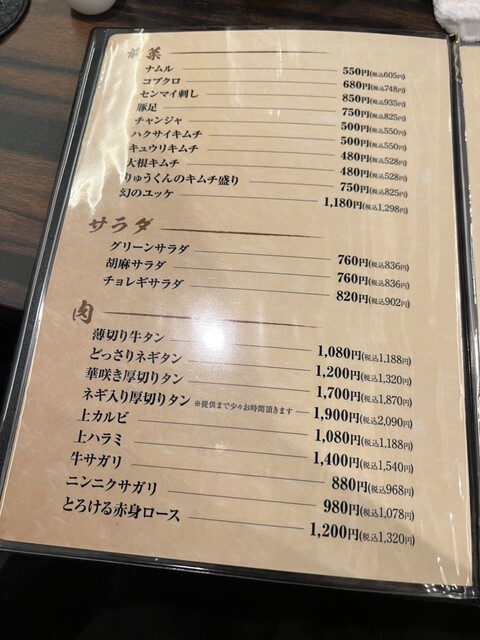 前菜
ナムル 550円(税込605円)
コブクロ 680円(税込748円)
センマイ刺し 850円(税込935円)
豚足 750円(税込825円)
チャンジャ 500円(税込550円)
ハクサイキムチ 500円(税込550円)
キュウリキムチ 480円(税込528円)
大根キムチ 480円(税込528円)
りゅうくんのキムチ盛り 750円(税込825円)
幻のユッケ 1,180円(税込1,298円)
サラダ
グリーンサラダ 760円(税込836円)
胡麻サラダ 760円(税込836円)
チョレギサラダ 820円(税込902円)
肉
薄切り牛タン 1,080円(税込1,188円)
どっさりネギタン 1,200円(税込1,320円)
華咲き厚切りタン 1,700円(税込1,870円)
ネギ入り厚切りタン ※提供まで少々お時間頂きます 1,900円(税込2,090円)
上カルビ 1,080円(税込1,188円)
上ハラミ 1,400円(税込1,540円)
牛サガリ 880円(税込968円)
ニンニクサガリ 980円(税込1,078円)
とろける赤身ロース 1,200円(税込1,320円)